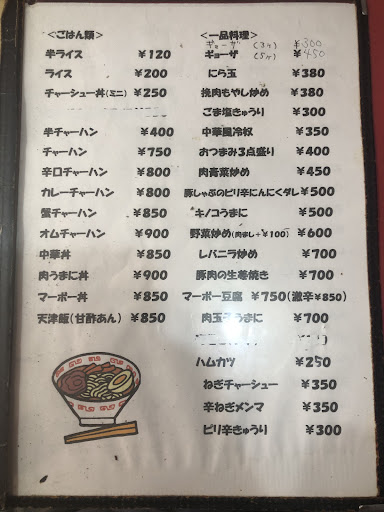 <ごはん類>
半ライス ¥120
ライス ¥200
チャーシュー丼(ミニ) ¥250
半チャーハン ¥400
チャーハン ¥750
辛口チャーハン ¥800
カレーチャーハン ¥800
蟹チャーハン ¥850
オムチャーハン ¥900
中華丼 ¥850
肉うまに丼 ¥900
マーボー丼 ¥850
天津飯(甘酢あん) ¥850
<一品料理>
ギョーザ (3ケ) ¥300
ギョーザ (5ケ) ¥450
にら玉 ¥380
挽肉もやし炒め ¥380
ごま塩きゅうり ¥300
中華風冷奴 ¥350
おつまみ3点盛り ¥400
肉青菜炒め ¥450
豚しゃぶのピリ辛にんにくダレ ¥500
キノコうまに ¥500
野菜炒め(肉なし+¥100) ¥600
レバニラ炒め ¥700
豚肉の生姜焼き ¥700
マーボー豆腐 ¥750(激辛¥850)
肉玉うまに ¥700
ハムカツ ¥250
ねぎチャーシュー ¥350
辛ねぎメンマ ¥350
ピリ辛きゅうり ¥300